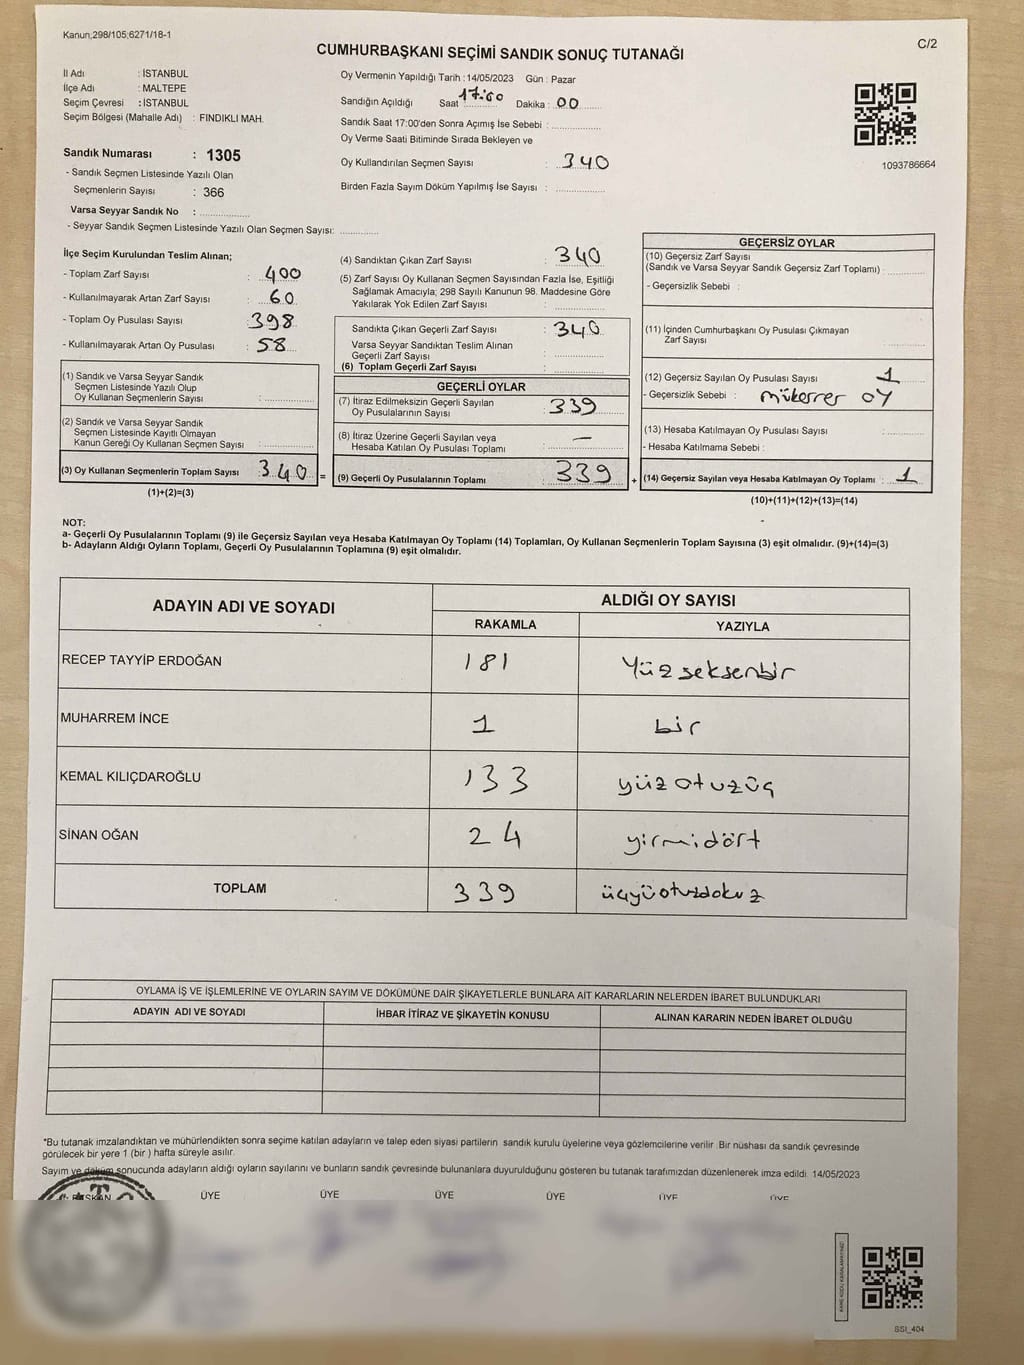 Kanun;298/105;6271/18-1
C/2
CUMHURBAŞKANI SEÇİMİ SANDIK SONUÇ TUTANAĞI
İl Adı : İSTANBUL
İlçe Adı : MALTEPE
Seçim Çevresi : İSTANBUL
Seçim Bölgesi (Mahalle Adı) : FINDIKLI MAH.
Sandık Numarası : 1305
- Sandık Seçmen Listesinde Yazılı Olan
Seçmenlerin Sayısı : 366
Varsa Seyyar Sandık No :
- Seyyar Sandık Seçmen Listesinde Yazılı Olan Seçmen Sayısı:
Oy Vermenin Yapıldığı Tarih :14/05/2023 Gün : Pazar
Sandığın Açıldığı Saat 17:00 Dakika : 00
Sandık Saat 17:00'den Sonra Açımış İse Sebebi :
Oy Verme Saati Bitiminde Sırada Bekleyen ve
Oy Kullandırılan Seçmen Sayısı : 340
Birden Fazla Sayım Döküm Yapılmış İse Sayısı :
1093786664
İlçe Seçim Kurulundan Teslim Alınan;
- Toplam Zarf Sayısı : 400
- Kullanılmayarak Artan Zarf Sayısı : 60
- Toplam Oy Pusulası Sayısı : 398
- Kullanılmayarak Artan Oy Pusulası : 58
(1) Sandık ve Varsa Seyyar Sandık
Seçmen Listesinde Yazılı Olup
Oy Kullanan Seçmenlerin Sayısı :
(2) Sandık ve Varsa Seyyar Sandık
Seçmen Listesinde Kayıtlı Olmayan
Kanun Gereği Oy Kullanan Seçmen Sayısı :
(3) Oy Kullanan Seçmenlerin Toplam Sayısı : 340 =
(1)+(2)=(3)
(4) Sandıktan Çıkan Zarf Sayısı : 340
(5) Zarf Sayısı Oy Kullanan Seçmen Sayısından Fazla İse, Eşitliği
Sağlamak Amacıyla; 298 Sayılı Kanunun 98. Maddesine Göre
Yakılarak Yok Edilen Zarf Sayısı :
Sandıkta Çıkan Geçerli Zarf Sayısı : 340
Varsa Seyyar Sandıktan Teslim Alınan
Geçerli Zarf Sayısı :
(6) Toplam Geçerli Zarf Sayısı :
GEÇERLİ OYLAR
(7) İtiraz Edilmeksizin Geçerli Sayılan
Oy Pusulalarının Sayısı : 339
(8) İtiraz Üzerine Geçerli Sayılan veya
Hesaba Katılan Oy Pusulası Toplamı : —
(9) Geçerli Oy Pusulalarının Toplamı : 339 +
GEÇERSİZ OYLAR
(10) Geçersiz Zarf Sayısı
(Sandık ve Varsa Seyyar Sandık Geçersiz Zarf Toplamı) :
- Geçersizlik Sebebi :
(11) İçinden Cumhurbaşkanı Oy Pusulası Çıkmayan
Zarf Sayısı :
(12) Geçersiz Sayılan Oy Pusulası Sayısı : 1
- Geçersizlik Sebebi : mükerrer oy
(13) Hesaba Katılmayan Oy Pusulası Sayısı :
- Hesaba Katılmama Sebebi :
(14) Geçersiz Sayılan veya Hesaba Katılmayan Oy Toplamı : 1
(10)+(11)+(12)+(13)=(14)
NOT:
a- Geçerli Oy Pusulalarının Toplamı (9) ile Geçersiz Sayılan veya Hesaba Katılmayan Oy Toplamı (14) Toplamları, Oy Kullanan Seçmenlerin Toplam Sayısına (3) eşit olmalıdır. (9)+(14)=(3)
b- Adayların Aldığı Oyların Toplamı, Geçerli Oy Pusulalarının Toplamına (9) eşit olmalıdır.
ADAYIN ADI VE SOYADI
ALDIĞI OY SAYISI
RAKAMLA YAZIYLA
RECEP TAYYİP ERDOĞAN 181 Yüz seksenbir
MUHARREM İNCE 1 bir
KEMAL KILIÇDAROĞLU 133 yüz otuzüç
SİNAN OĞAN 24 yirmidört
TOPLAM 339 üçyüotuzdokuz
OYLAMA İŞ VE İŞLEMLERİNE VE OYLARIN SAYIM VE DÖKÜMÜNE DAİR ŞİKAYETLERLE BUNLARA AİT KARARLARIN NELERDEN İBARET BULUNDUKLARI
ADAYIN ADI VE SOYADI İHBAR İTİRAZ VE ŞİKAYETİN KONUSU ALINAN KARARIN NEDEN İBARET OLDUĞU
*Bu tutanak imzalandıktan ve mühürlendikten sonra seçime katılan adayların ve talep eden siyasi partilerin sandık kurulu üyelerine veya gözlemcilerine verilir. Bir nüshası da sandık çevresinde
görülecek bir yere 1 (bir ) hafta süreyle asılır.
Sayım ve döküm sonucunda adayların aldığı oyların sayılarını ve bunların sandık çevresinde bulunanlara duyurulduğunu gösteren bu tutanak tarafımızdan düzenlenerek imza edildi. 14/05/2023
BAŞKAN ÜYE ÜYE ÜYE ÜYE ÜYE ÜYE
SSI_404